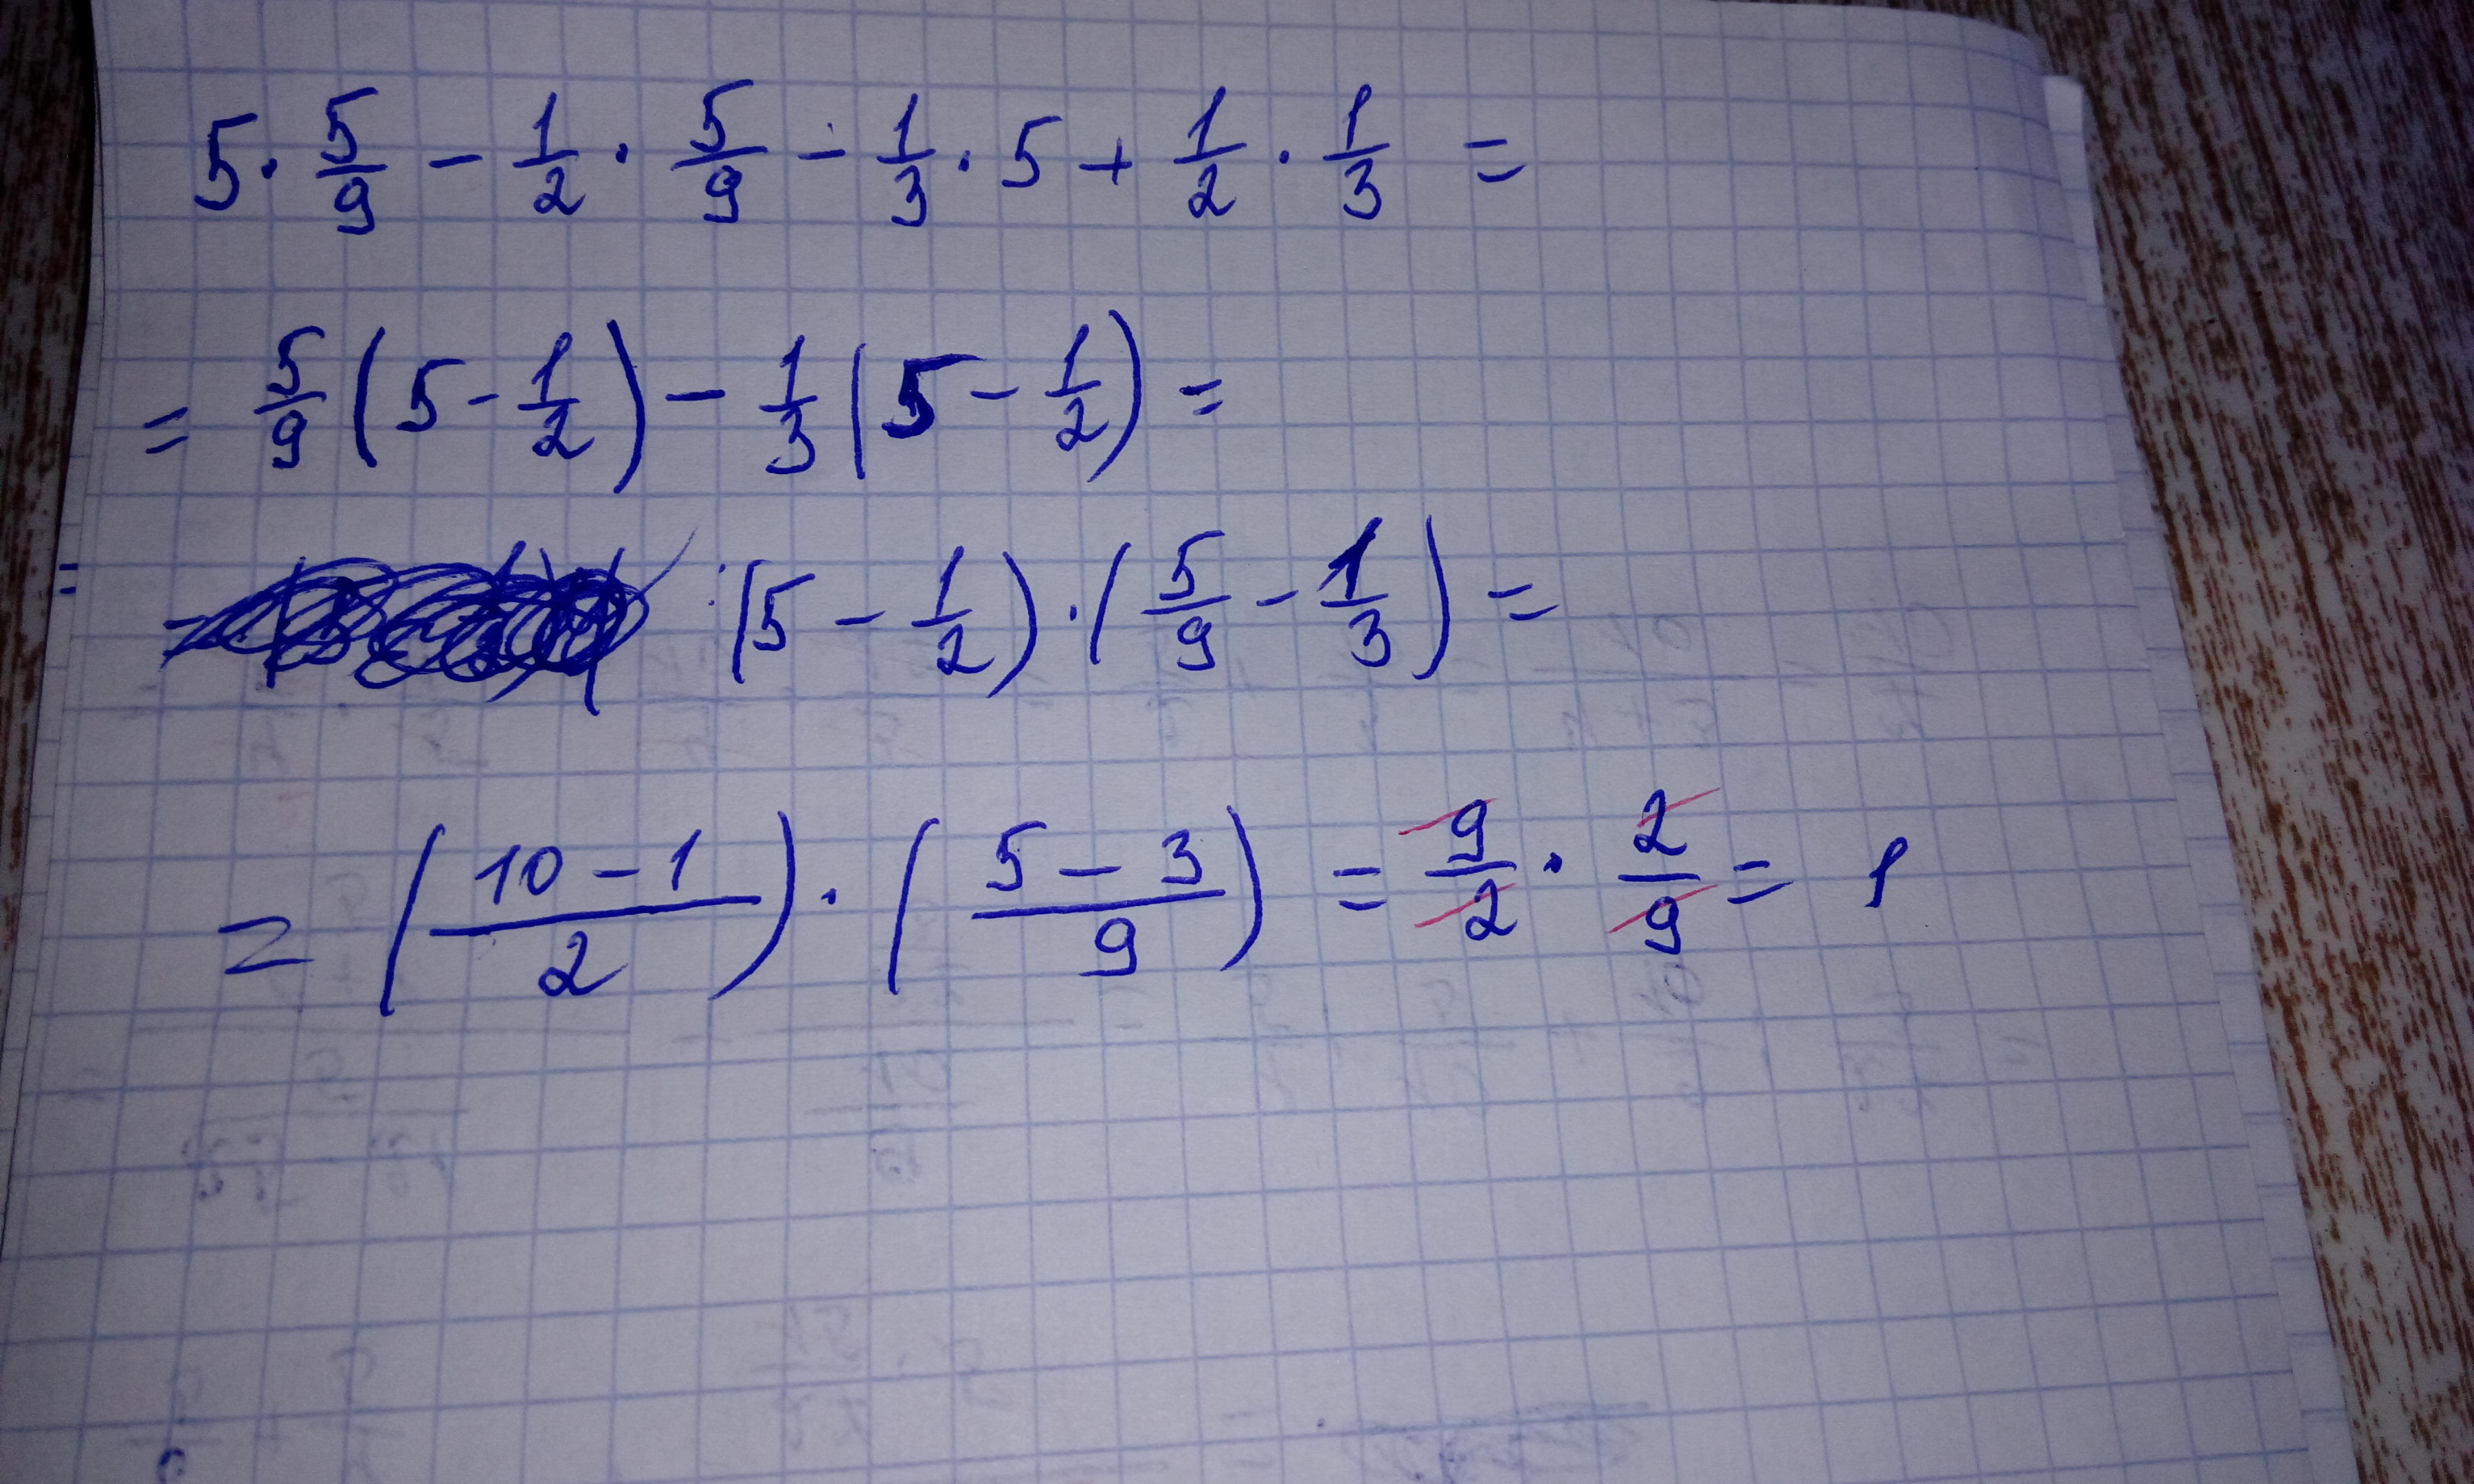 5 · 5/9 − 1/2 · 5/9 − 1/3 · 5 + 1/2 · 1/3 =
= 5/9 (5 − 1/2) − 1/3 (5 − 1/2) =
= (5 − 1/2) · (5/9 − 1/3) =
= ((10 − 1)/2) · ((5 − 3)/9) = 9/2 · 2/9 = 1